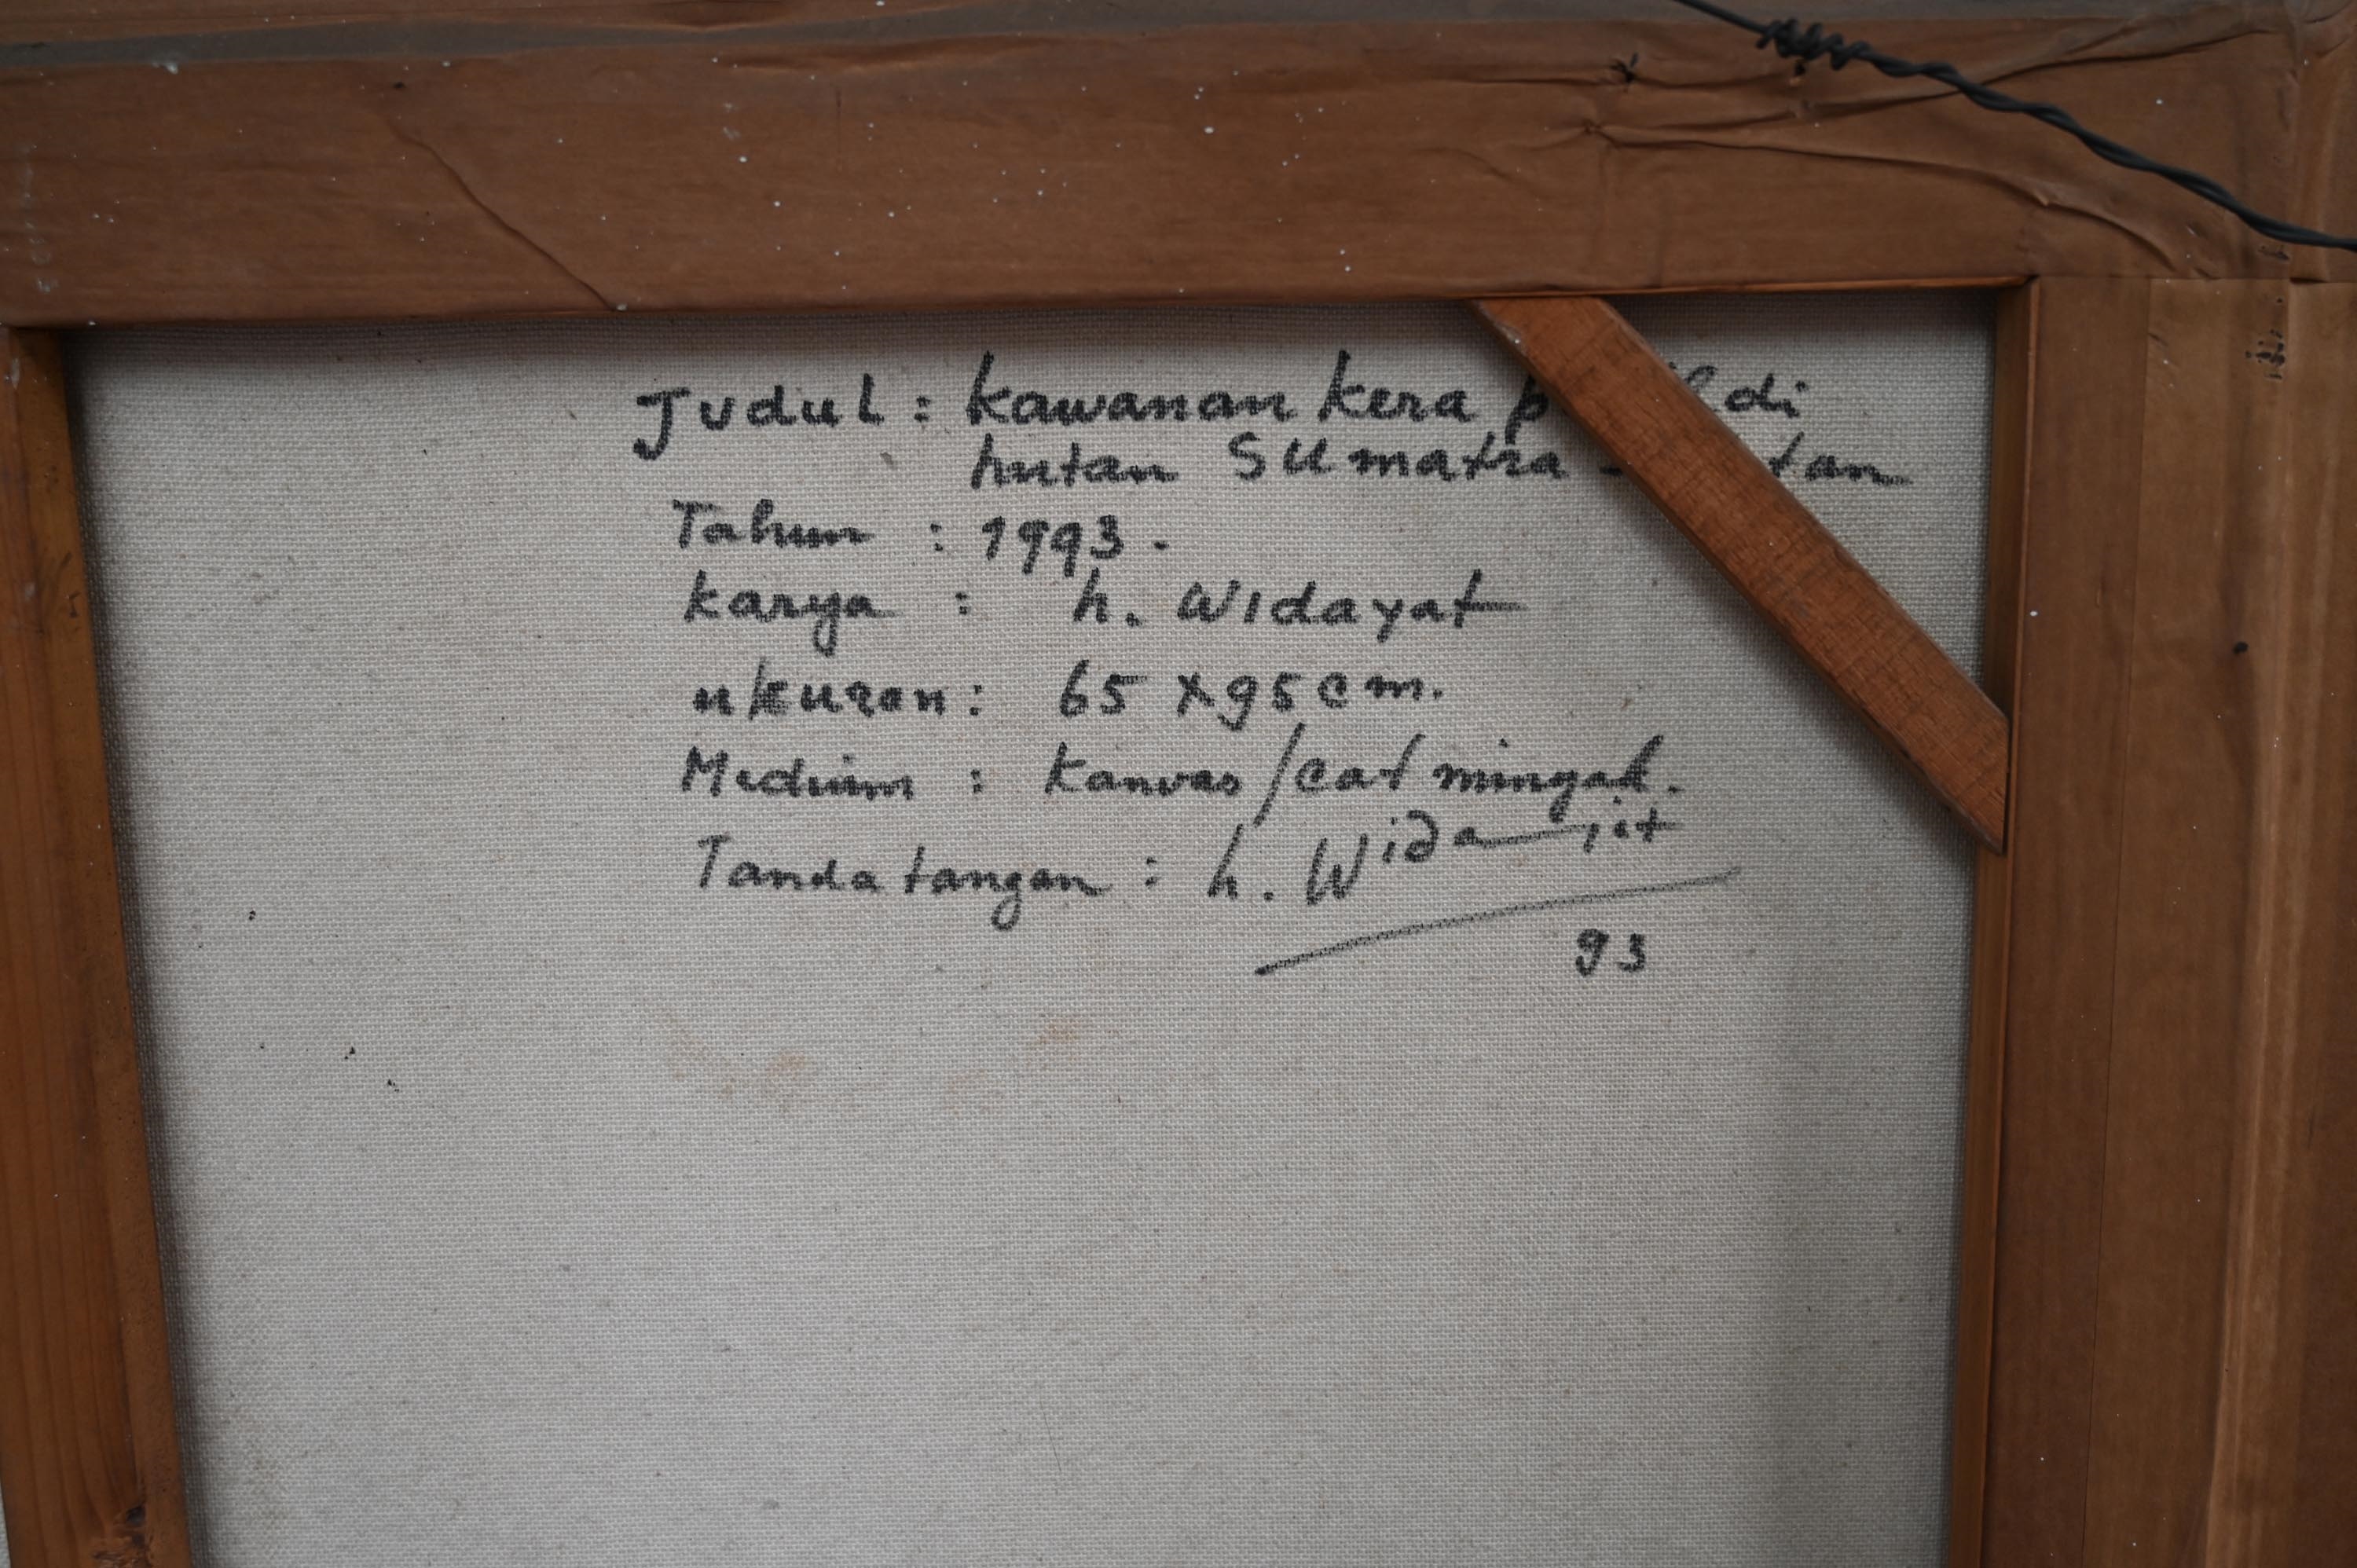 Judul : kawanan kera di
hutan Sumatra -
Tahun : 1993.
karya : h. Widayat
ukuran : 65 x 95 cm.
Medium : Kanvas/cat minyak.
Tanda tangan : h. Widayat
93